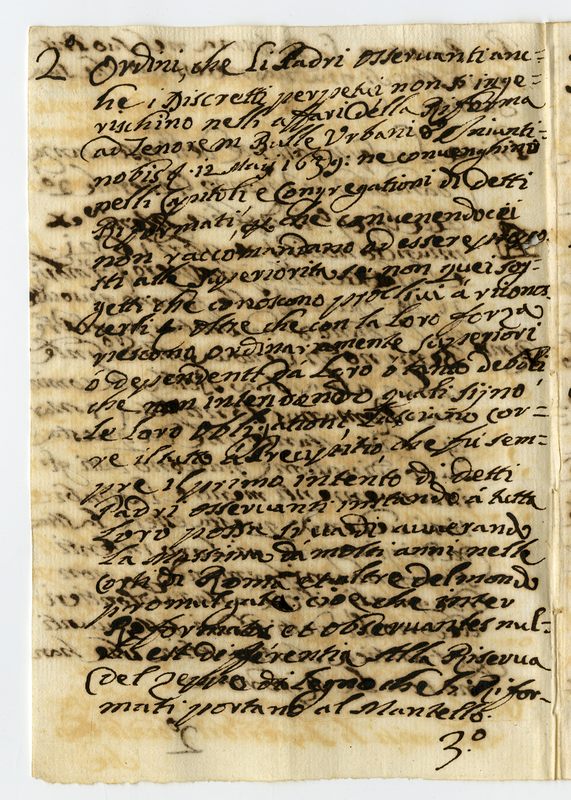 2.º Ordini, che li Padri Osservanti anc=
he i Discretti perpetui non si inge=
rischino nelli affari della Riforma
ad tenorem Bulle Urbani 8.
nobis 12 Maij 1639: ne convenghino
nelli Capitoli e Congregationi di detti
Riformati, che convenendoci
non raccomandano ad essere
tti alle Superiorità se non quei sog=
getti che conoscono proclivi à
oltre che con la loro forza
riescono ordinariamente Superiori
ò dependenti da loro ò tanto deboli
che non intendendo quali sijno
le loro obligationi, lasciano cor=
re il tutto al Precipitio, che fù sem=
pre il primo intento di detti
Padri Osservanti à tutta
loro possa avverando
la Massima da molti anni nelle
Corti di Roma et altre del mondo
promulgata, cioè che inter
Reformatos et Observantes nul=
la est differentia alla Riserva
del Zeppo di Legno che li Rifor=
mati portano al Mantello.
3.º